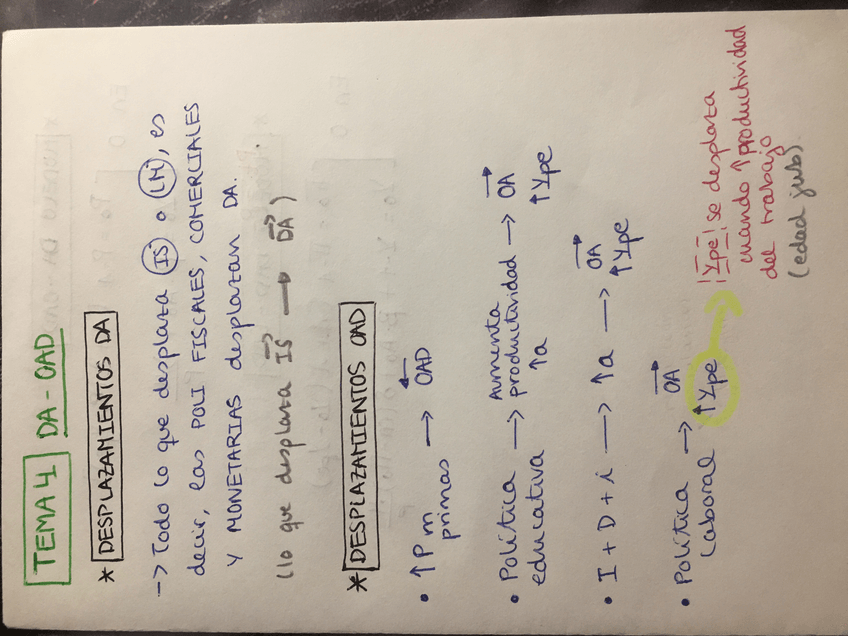 TEMA 4 DA - OAD
* DESPLAZAMIENTOS DA
-> Todo lo que desplaza IS o LM, es
decir, las POLI FISCALES, COMERCIALES
Y MONETARIAS desplazan DA.
(lo que desplaza IS → DA)
* DESPLAZAMIENTOS OAD
• ↑P m → OAD
primas
• Política → Aumenta productividad → OA
educativa ↑a ↑Ype
• I + D + i → ↑a → OA
↑Ype
• Política → OA
laboral ↑Ype
Ype! se desplaza
cuando ↑productividad
del trabajo
(edad jub).